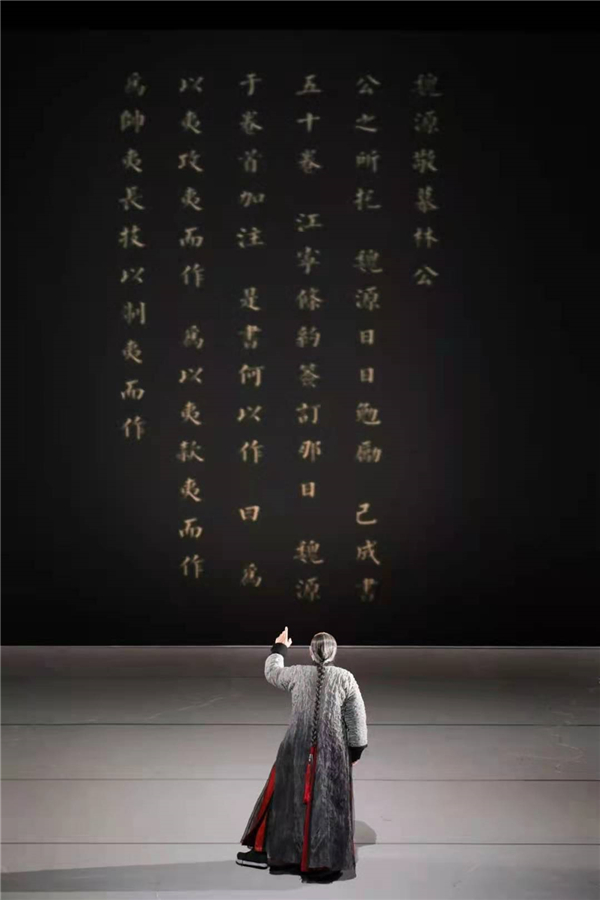 魏源敬慕林公
公之所托 魏源日日勉勵 已成書
五十卷 江寧條約簽訂那日 魏源
于卷首加注 是書何以作 曰 為
以夷攻夷而作 為以夷款夷而作
為師夷長技以制夷而作